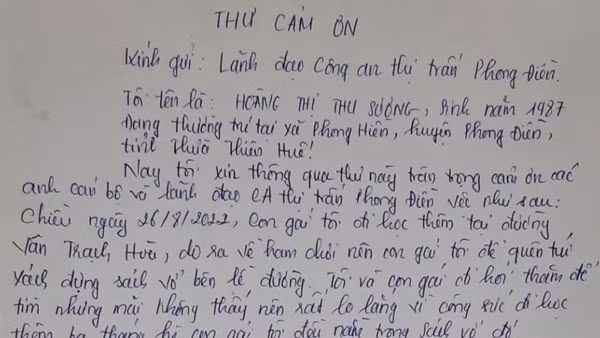 THƯ CẢM ƠN
Kính gửi: Lãnh đạo Công an thị trấn Phong Điền.
Tôi tên là: HOÀNG THỊ THU SƯƠNG, sinh năm 1987
Đang thường trú tại xã Phong Hiền, huyện Phong Điền,
tỉnh Thừa Thiên Huế!
Nay tôi xin thông qua thư này trân trọng cảm ơn các
anh cán bộ và lãnh đạo CA thị trấn Phong Điền việc như sau:
Chiều ngày 26/8/2022, con gái tôi đi học thêm tại đường
Văn Trạch Hữu, do ra về ham chơi nên con gái tôi để quên túi
xách đựng sách vở bên lề đường. Tôi và con gái có hỏi thăm để
tìm nhưng mãi không thấy nên rất lo lắng vì công sức đi học
thêm ba tháng hè con gái tôi đều nằm trong sách vở đó